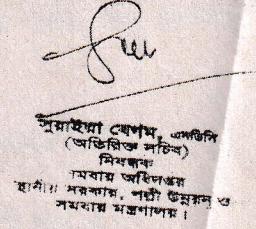 সুরাইয়া বেগম, এনডিসি
(অতিরিক্ত সচিব)
নিবন্ধক
সমবায় অধিদপ্তর
স্থানীয় সরকার, পল্লী উন্নয়ন ও
সমবায় মন্ত্রণালয়।